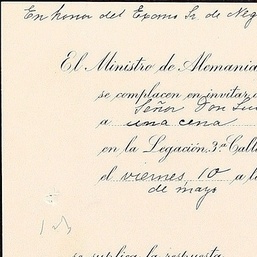 En honor del Excmo Sr. de Neg
El Ministro de Alemania
se complacen en invitar a
Señor Don Lui
a una cena
en la Legación, 3.ª Calle
el viernes 10 a l
de mayo
se suplica la respuesta